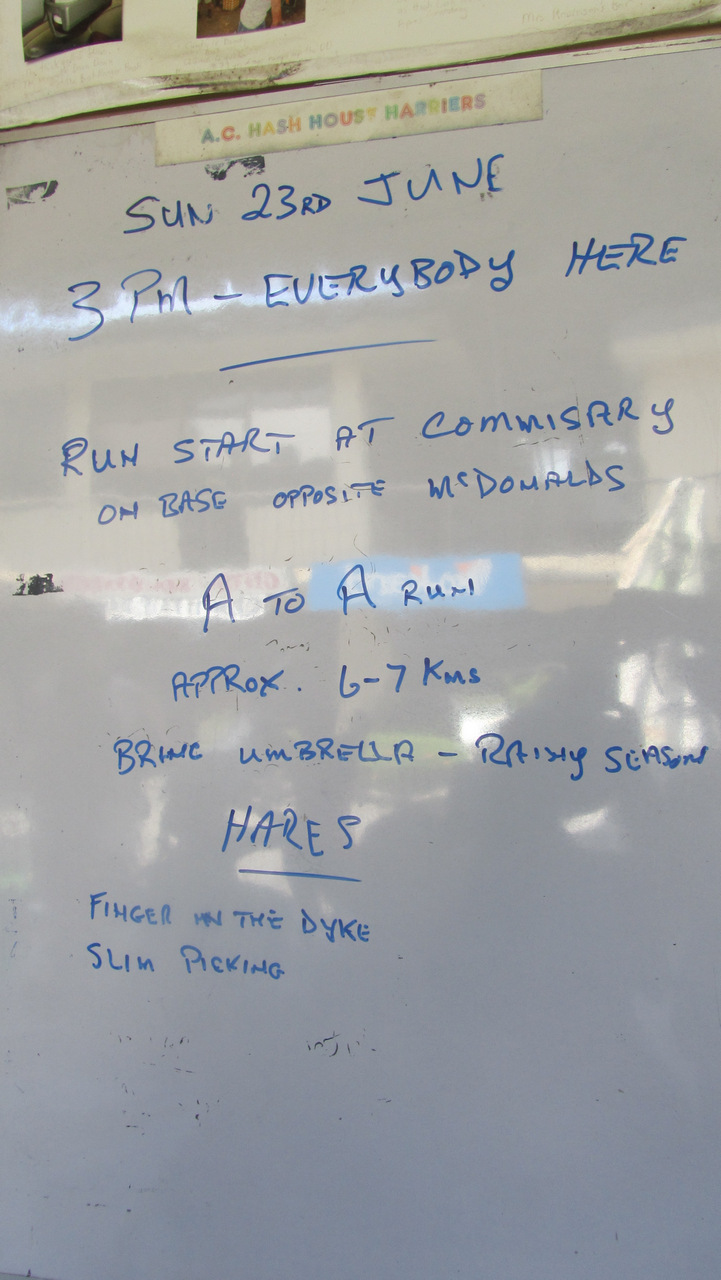 A.C. HASH HOUSE HARRIERS
SUN 23RD JUNE
3 PM - EVERYBODY HERE
RUN START AT COMMISARY
ON BASE OPPOSITE McDONALDS
A TO A RUN
APPROX. 6-7 KMS
BRING UMBRELLA - RAINY SEASON
HARES
FINGER IN THE DYKE
SLIM PICKING